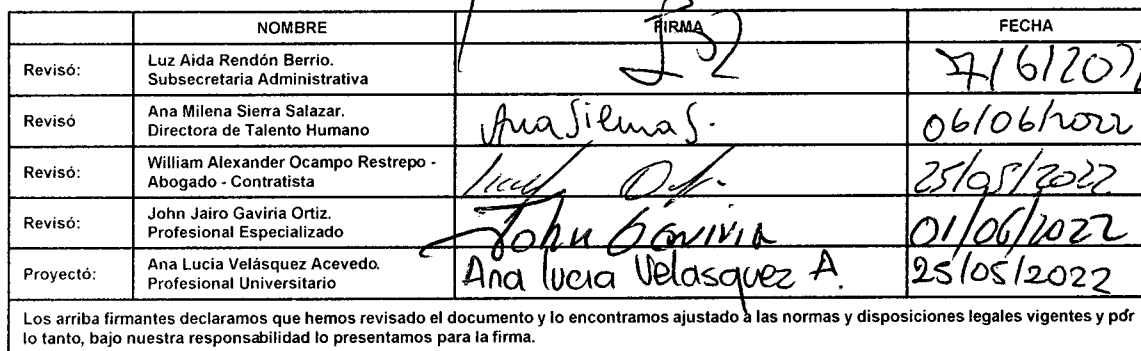 NOMBRE FIRMA FECHA
Revisó: Luz Aida Rendón Berrio.
Subsecretaria Administrativa 7/6/2022
Revisó Ana Milena Sierra Salazar.
Directora de Talento Humano 06/06/2022
Revisó: William Alexander Ocampo Restrepo -
Abogado - Contratista 25/05/2022
Revisó: John Jairo Gaviria Ortiz.
Profesional Especializado John Gaviria 01/06/2022
Proyectó: Ana Lucia Velásquez Acevedo.
Profesional Universitario Ana lucia Velasquez A. 25/05/2022
Los arriba firmantes declaramos que hemos revisado el documento y lo encontramos ajustado a las normas y disposiciones legales vigentes y por
lo tanto, bajo nuestra responsabilidad lo presentamos para la firma.